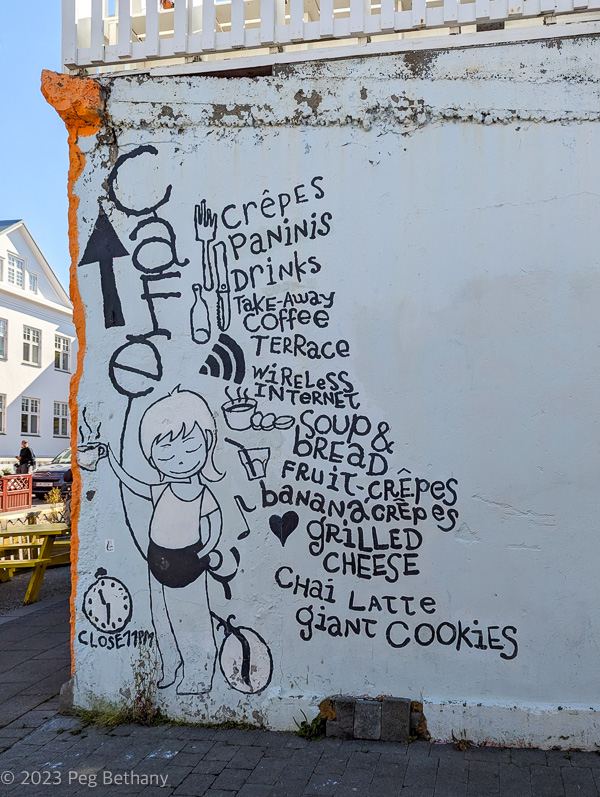 Café
CRÊPES
PANINIS
DRINKS
TAKE-AWAY
COFFEE
TERRACE
WIRELESS
INTERNET
SOUP &
BREAD
FRUIT-CRÊPES
BANANACRÊPES
GRILLED
CHEESE
CHAI LATTE
giant COOKIES
CLOSE 11PM
© 2023 Peg Bethany